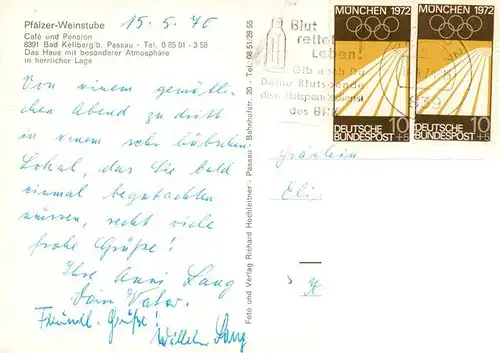 Pfälzer-Weinstube
Café und Pension
8391 Bad Kellberg b. Passau - Tel. 0 85 01 - 3 58
Das Haus mit besonderer Atmosphäre
in herrlicher Lage
15. 5. 70
Von einem gemüt-
lichen Abend zu dritt
in einem sehr hübschen
Lokal, das Sie bald
einmal begutachten
müssen, recht viele
frohe Grüße!
Ihre Anni Lang
Vater.
Freundl. Grüße!
Wilhelm Lang
Foto und Verlag Richard Hochleitner - Passau - Bahnholstr. 20 - Tel. 08 51/28 55
Blut
rettet
Leben!
Gib auch Du
Deine Blutspende
dem Blutspendedienst
des BRK
839
MÜNCHEN 1972
DEUTSCHE
BUNDESPOST
10
+5
MÜNCHEN 1972
DEUTSCHE
BUNDESPOST
10
+5
Fräulein